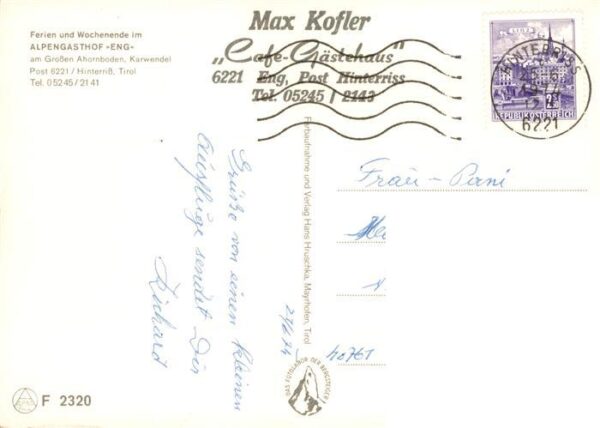 Ferien und Wochenende im
ALPENGASTHOF »ENG«
am Großen Ahornboden, Karwendel
Post 6221 / Hinterriß, Tirol
Tel. 05245 / 21 41
Max Kofler
„Cafe-Gästehaus"
6221 Eng, Post Hinterriss
Tel. 05245 / 2143
HINTERRISS
6221
REPUBLIK ÖSTERREICH
Grüße von einem kleinen
Ausfluge sendet Dir
Richard
Farbaufnahme und Verlag Hans Hruschka, Mayrhofen, Tirol
DAS FOTOLABOR DER BERGSTEIGER
Frau - Pani
40761
F 2320